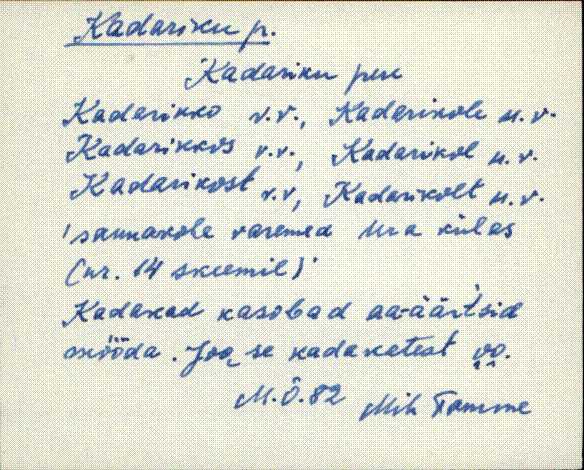 Kadariku p.
Kadariku pere
Kadarikko v.v., Kadarikole u.v.
Kadarikkos v.v., Kadarikol u.v.
Kadarikost v.v, Kadarikolt u.v.
'saunakohe varemed Ura külas
(nr. 14 skeemil)'
Kadakad kasobad aa-äärtsid
mööda. Joq se kadakatest
M.Õ.82 Mih Tamme